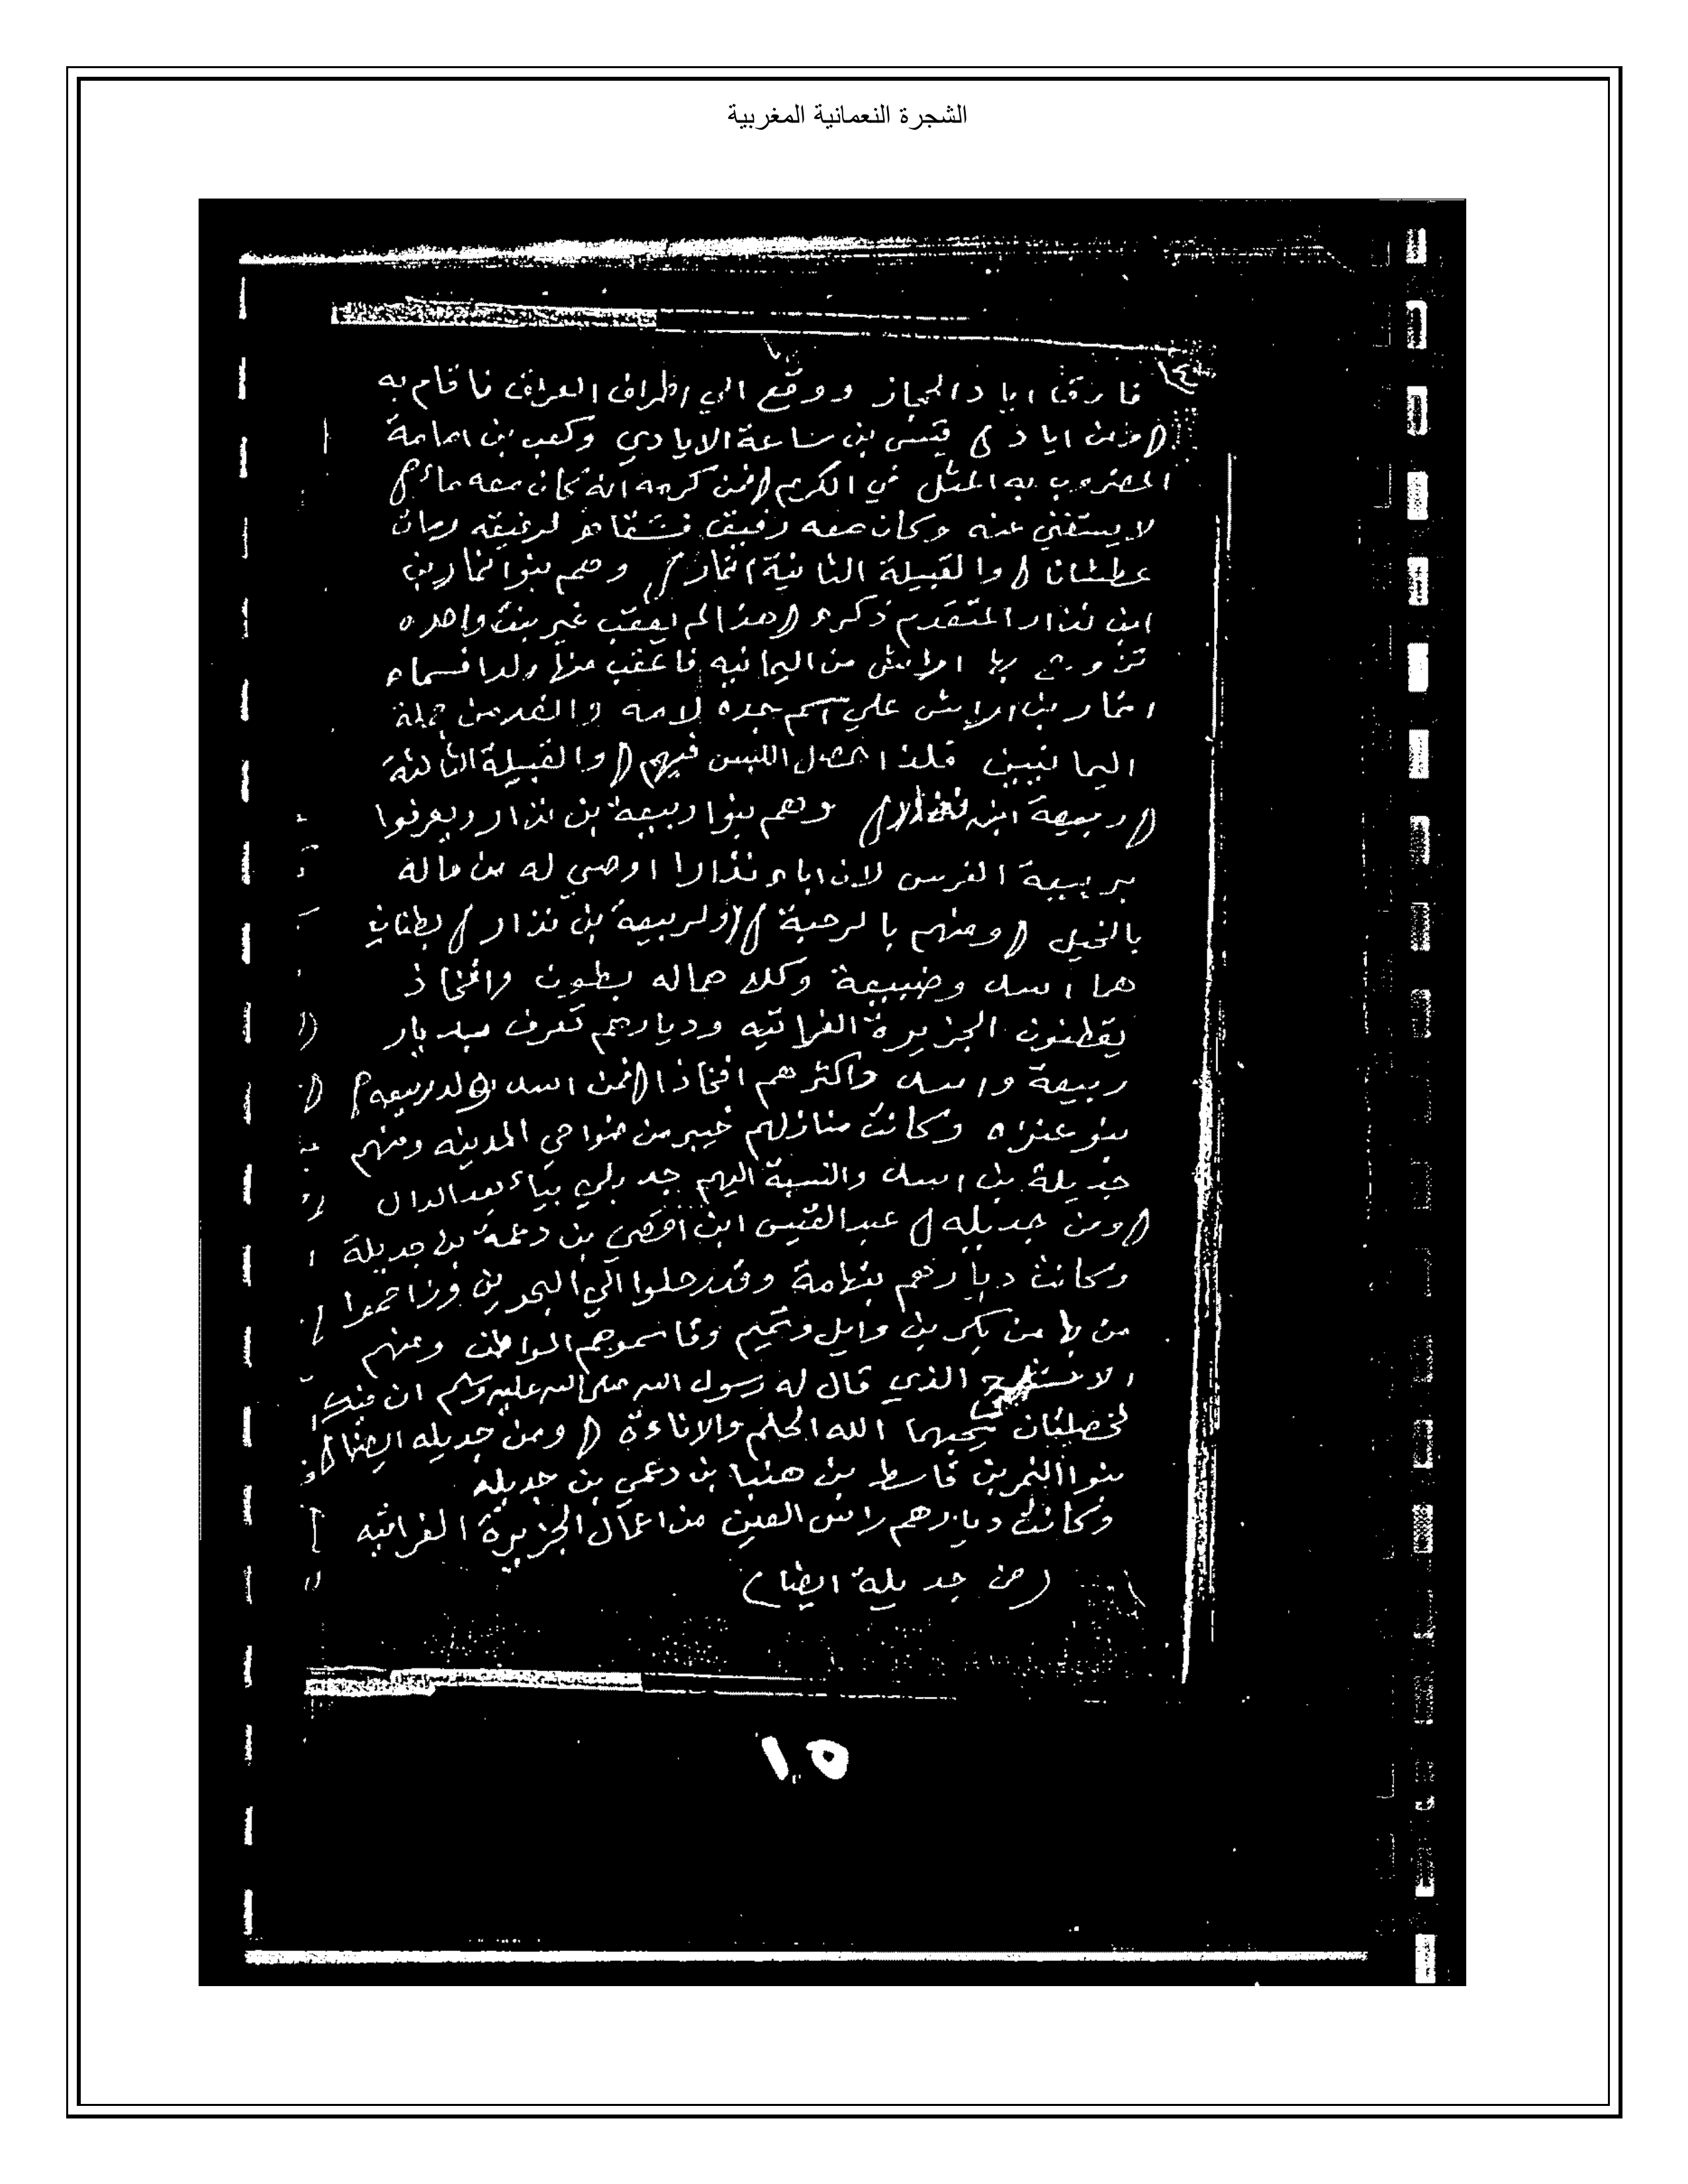 الشجرة النعمانية المغربية
١٤
فارق اياد الحجاز ووقع الي اطراف العراق فاقام به
(ومن اياد) قيس بن ساعة الايادي وكعب بن امامة
المضروب به المثل في الكريم (فمن كرمه انه كان معه ماء)
لا يستغني عنه وكان معه رفيق فسقاه لرفيقه ومات
عطشانا (والقبيلة الثانية انمار) وهم بنوا انمار بن
ابن نذار المتقدم ذكره (هذا لم يعقب غير بنت واحده
تزوج بها اراش من اليمانيه فاعقب منها ولدا فسماه
انمار بن اراش علي اسم جده لامه من جملة
اليمانيين فلذا حصل اللبس فيهم (والقبيلة الثالثة
(ربيعة ابن نذار) وهم بنوا ربيعة بن نذار ويعرفوا
بربيعة الفرس لان اباه نذارا اوصي له من ماله
بالخيل (ومنهم بالرحبة) (ولربيعة بن نذار) بطنان
هما اسد وضبيعة وكلا هماله بطون وافخاذ
يقطنون الجزيرة الفراتيه وديارهم تعرف بديار
ربيعة واسد واكثرهم افخاذا (فمن اسد ولد ربيعه)
بنو عنزه وكانت منازلهم خيبر من ضواحي المدينه ومنهم
جديلة بن اسد والنسبة اليهم جديلي بياء بعد الدال
(ومن جديله) عبد القيس ابن افصي بن دعمة بن جديلة
وكانت ديارهم بتهامة وقد رحلوا الي البحرين وزاحموا
من بها من بكر بن وايل وتميم وقاسموهم المواطن ومنهم
الاشج الذي قال له رسول الله صلى الله عليه وسلم ان فيك
لخصلتان يحبهما الله الحلم والاناءة (ومن جديله ايضا)
بنوا النمر بن قاسط بن هنبا بن دعمي بن جديله
وكانت ديارهم راس العين من اعمال الجزيرة الفراتيه
(من جديلة ايضا)
١٥